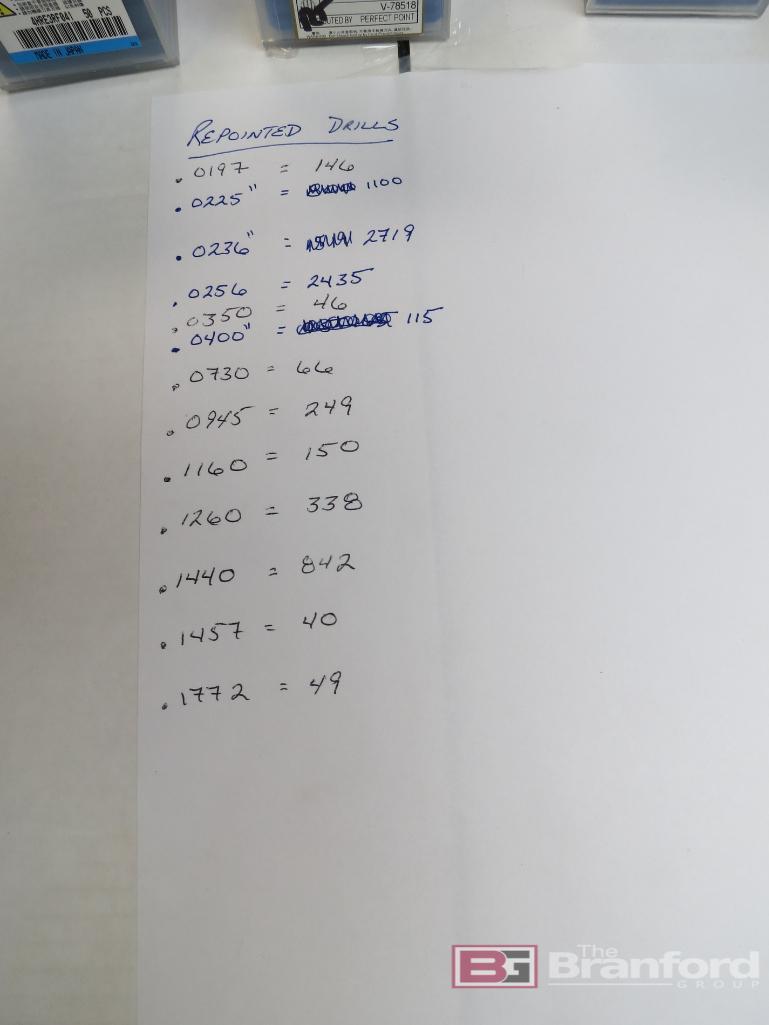 4HRE3RF041 50 PCS
MADE IN JAPAN
V-78518
UTED BY PERFECT POINT
REPOINTED DRILLS
.0197 = 146
.0225" = 1100
.0236" = 2719
.0256 = 2435
.0350 = 46
.0400" = 115
.0730 = 66
.0945 = 249
.1160 = 150
.1260 = 338
.1440 = 842
.1457 = 40
.1772 = 49
BG The Branford GROUP